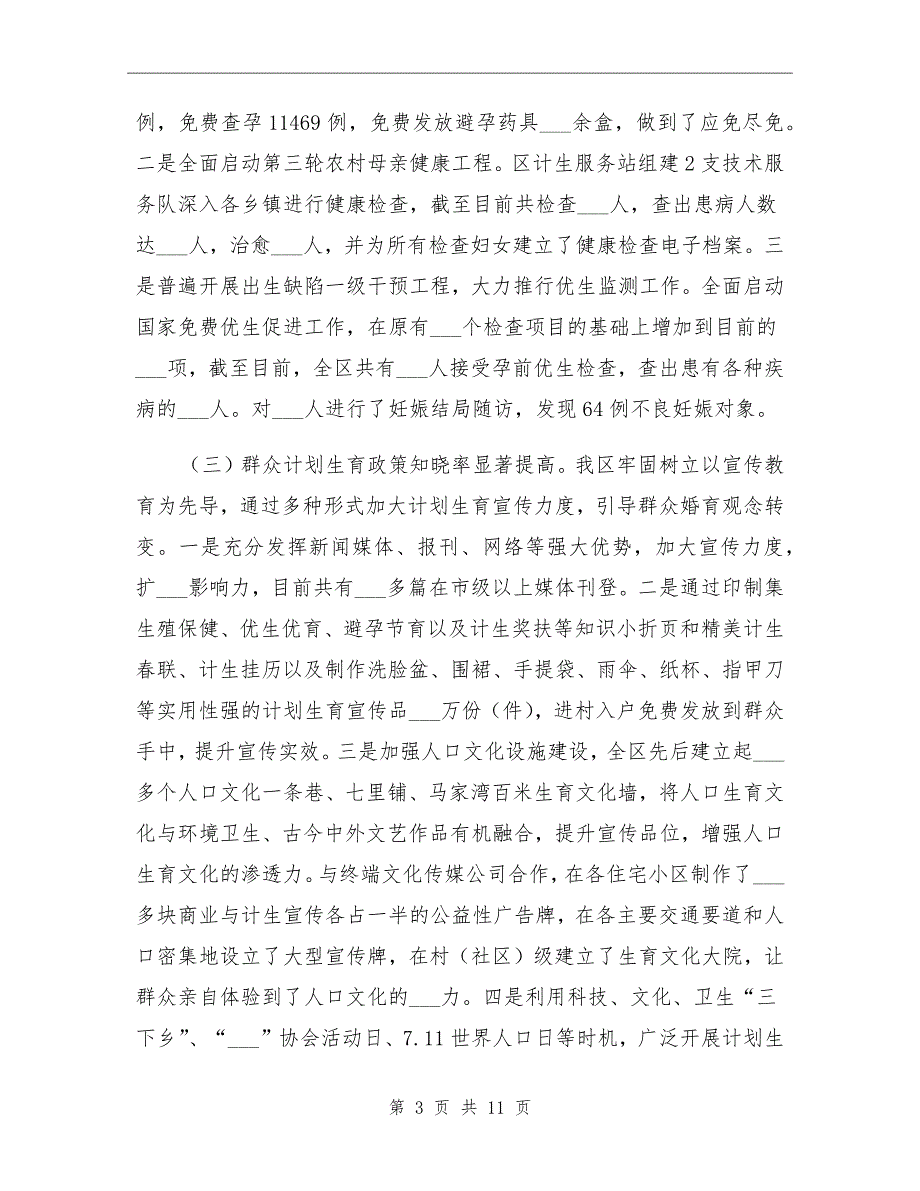 例，免费查孕 11469 例，免费发放避孕药具___余盒，做到了应免尽免。
二是全面启动第三轮农村母亲健康工程。区计生服务站组建 2 支技术服
务队深入各乡镇进行健康检查，截至目前共检查___人，查出患病人数
达___人，治愈___人，并为所有检查妇女建立了健康检查电子档案。三
是普遍开展出生缺陷一级干预工程，大力推行优生监测工作。全面启动
国家免费优生促进工作，在原有___个检查项目的基础上增加到目前的
___项，截至目前，全区共有___人接受孕前优生检查，查出患有各种疾
病的___人。对___人进行了妊娠结局随访，发现 64 例不良妊娠对象。
（三）群众计划生育政策知晓率显著提高。我区牢固树立以宣传教
育为先导，通过多种形式加大计划生育宣传力度，引导群众婚育观念转
变。一是充分发挥新闻媒体、报刊、网络等强大优势，加大宣传力度，
扩___影响力，目前共有___多篇在市级以上媒体刊登。二是通过印制集
生殖保健、优生优育、避孕节育以及计生奖扶等知识小折页和精美计生
春联、计生挂历以及制作洗脸盆、围裙、手提袋、雨伞、纸杯、指甲刀
等实用性强的计划生育宣传品___万份（件），进村入户免费发放到群众
手中，提升宣传实效。三是加强人口文化设施建设，全区先后建立起___
多个人口文化一条巷、七里铺、马家湾百米生育文化墙，将人口生育文
化与环境卫生、古今中外文艺作品有机融合，提升宣传品位，增强人口
生育文化的渗透力。与终端文化传媒公司合作，在各住宅小区制作了___
多块商业与计生宣传各占一半的公益性广告牌，在各主要交通要道和人
口密集地设立了大型宣传牌，在村（社区）级建立了生育文化大院，让
群众亲自体验到了人口文化的___力。四是利用科技、文化、卫生“三
下乡”、“___”协会活动日、7.11 世界人口日等时机，广泛开展计划生
第 3 页 共 11 页